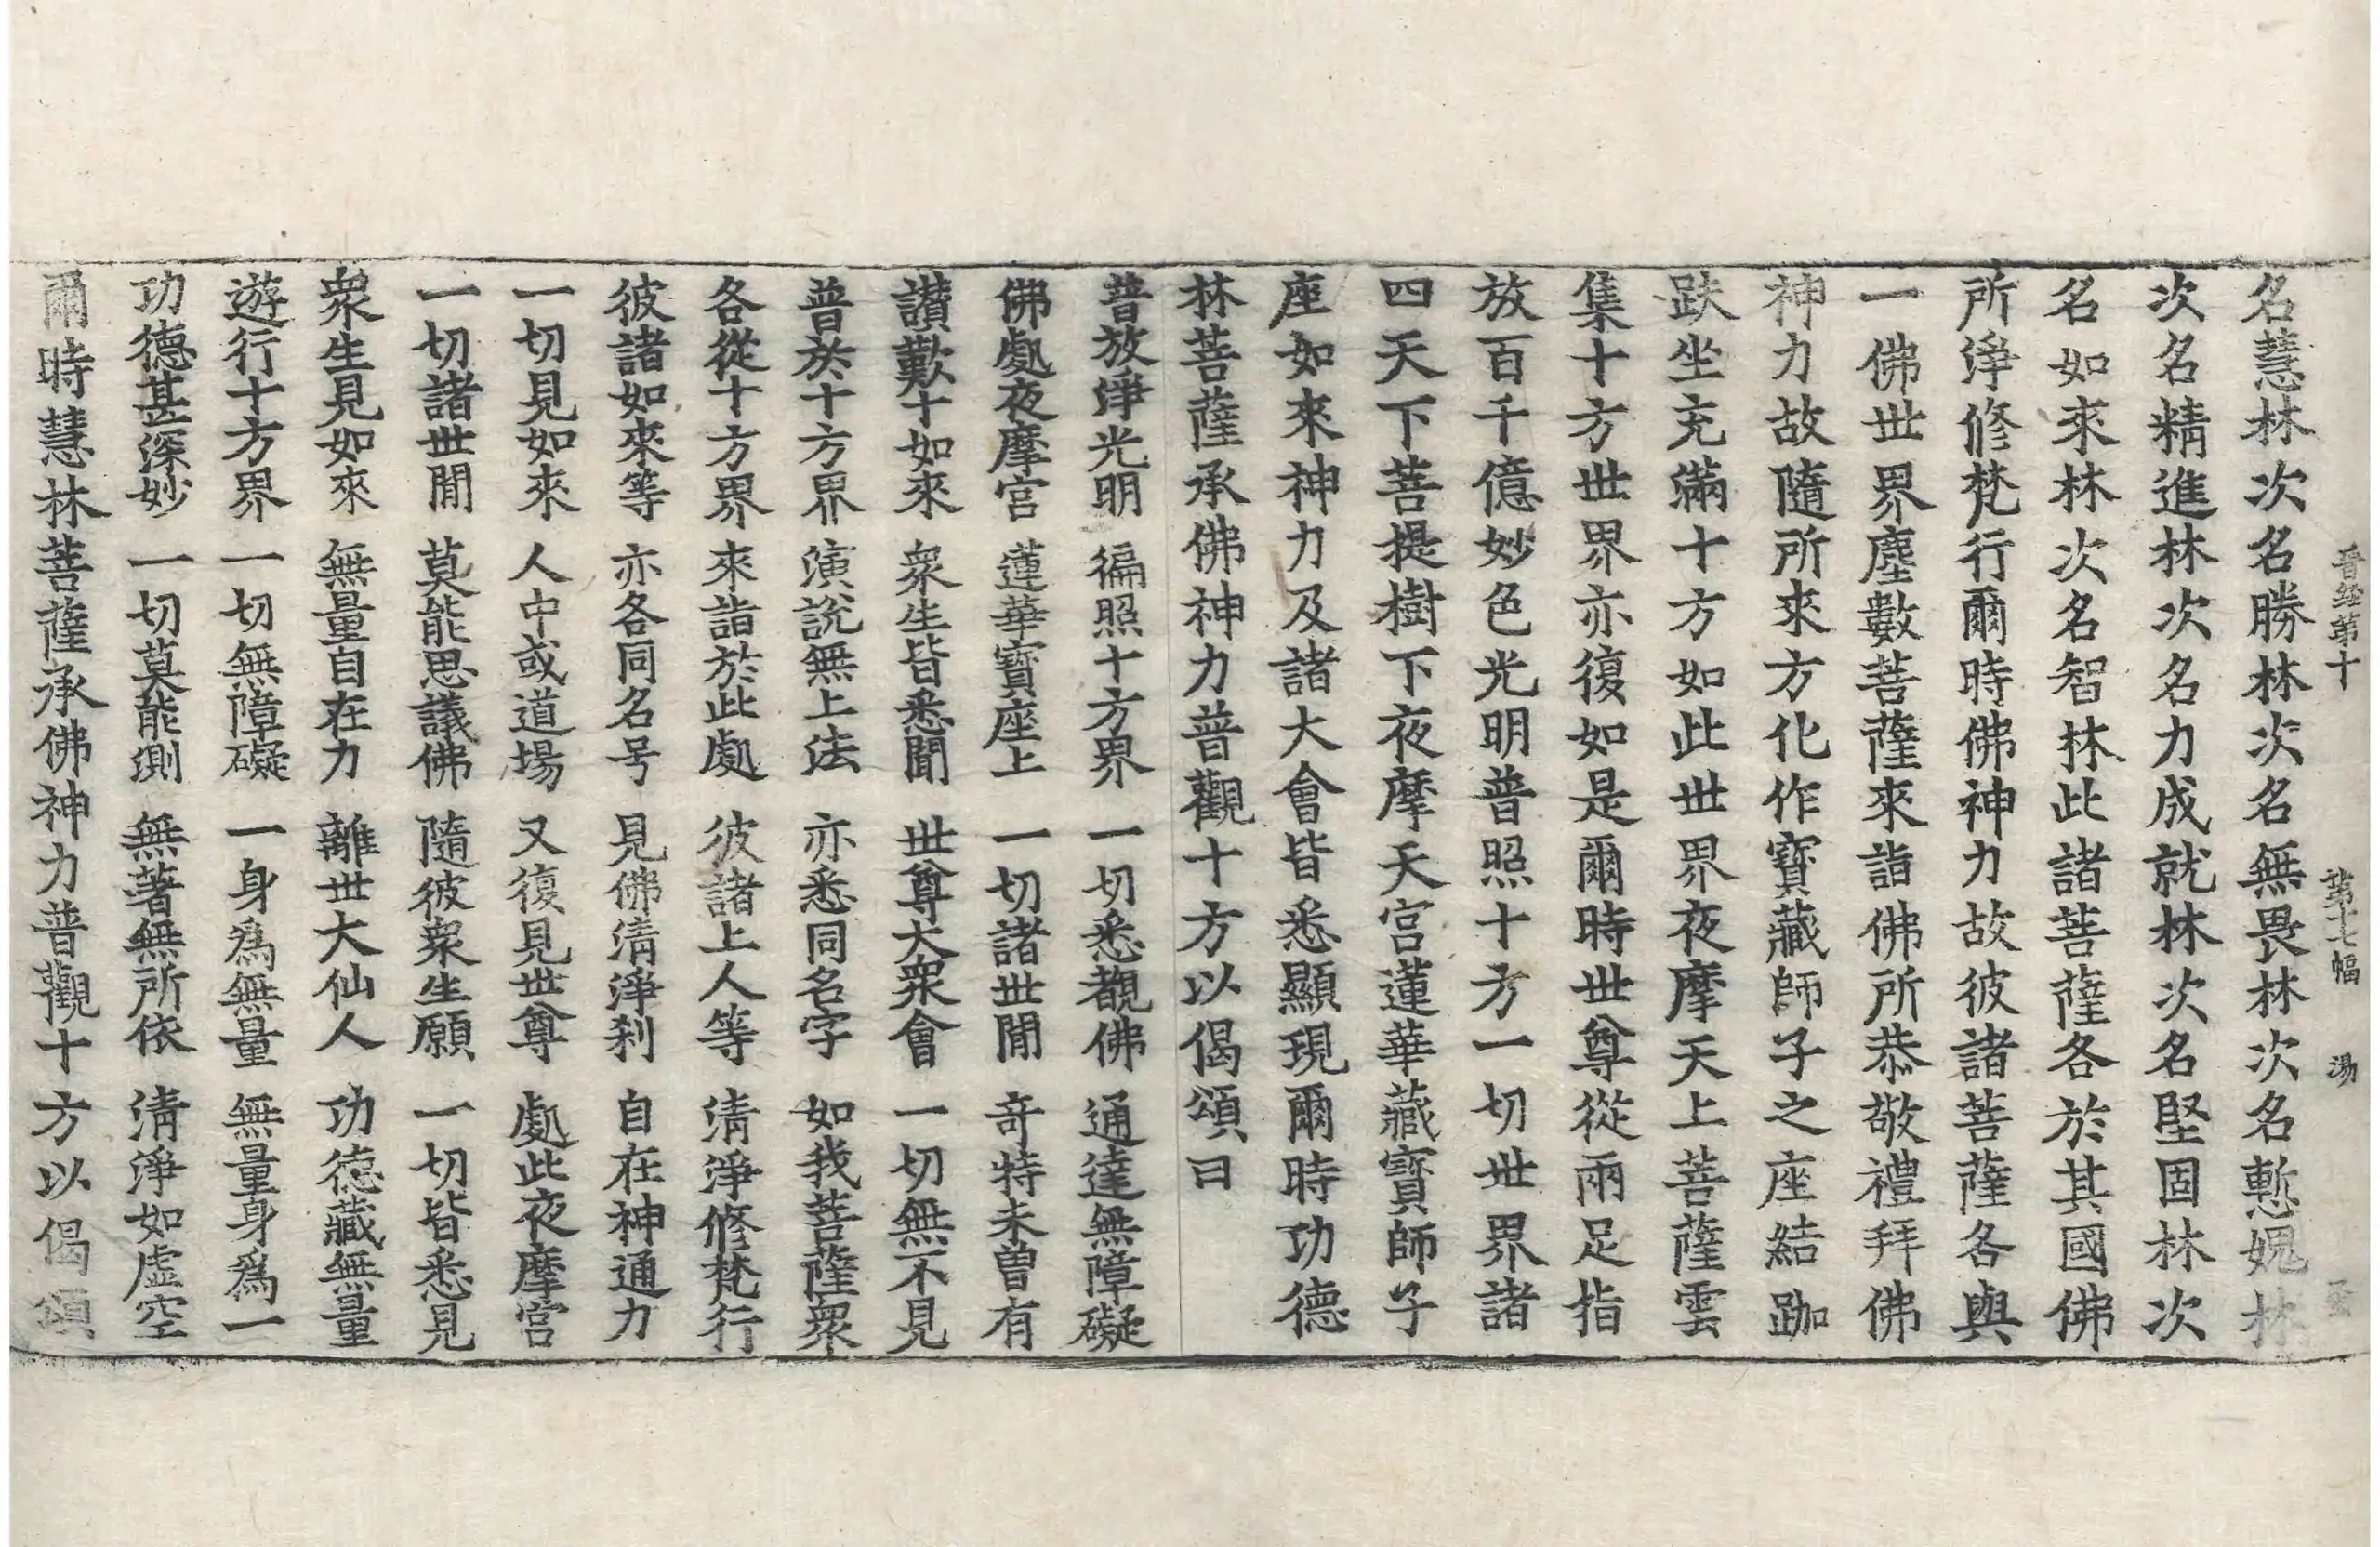 晋経第十　第十七幅　湯
名慧林次名勝林次名無畏林次名慙媿林
次名精進林次次名力成就林次名堅固林次
名如來林次名智林此諸菩薩各於其國佛
所淨修梵行爾時佛神力故彼諸菩薩各與
一佛世界塵數菩薩來詣佛所恭敬禮拜佛
神力故隨所來方化作寶藏師子之座結跏
趺坐充滿十方如此世界夜摩天上菩薩雲
集十方世界亦復如是爾時世尊從兩足指
放百千億妙色光明普照十方一切世界諸
四天下菩提樹下夜摩天宮蓮華藏寶師子
座如來神力及諸大會皆悉顯現爾時功德
林菩薩承佛神力普觀十方以偈頌曰
普放淨光明　徧照十方界　一切悉覩佛　通達無障礙
佛處夜摩宮　蓮華寶座上　一切諸世閒　奇特未曾有
讃歎十如來　衆生皆悉聞　世尊大衆會　一切無不見
普於十方界　演說無上法　亦悉同名字　如我菩薩衆
各從十方界　來詣於此處　彼諸上人等　清淨修梵行
彼諸如來等　亦各同名号　見佛清淨刹　自在神通力
一切見如來　人中或道場　又復見世尊　處此夜摩宮
一切諸世閒　莫能思議佛　隨彼衆生願　一切皆悉見
衆生見如來　無量自在力　離世大仙人　功德藏無量
遊行十方界　一切無障礙　一身爲無量　無量身爲一
功德甚深妙　一切莫能測　無著無所依　清淨如虛空
爾時慧林菩薩承佛神力普觀十方以偈頌